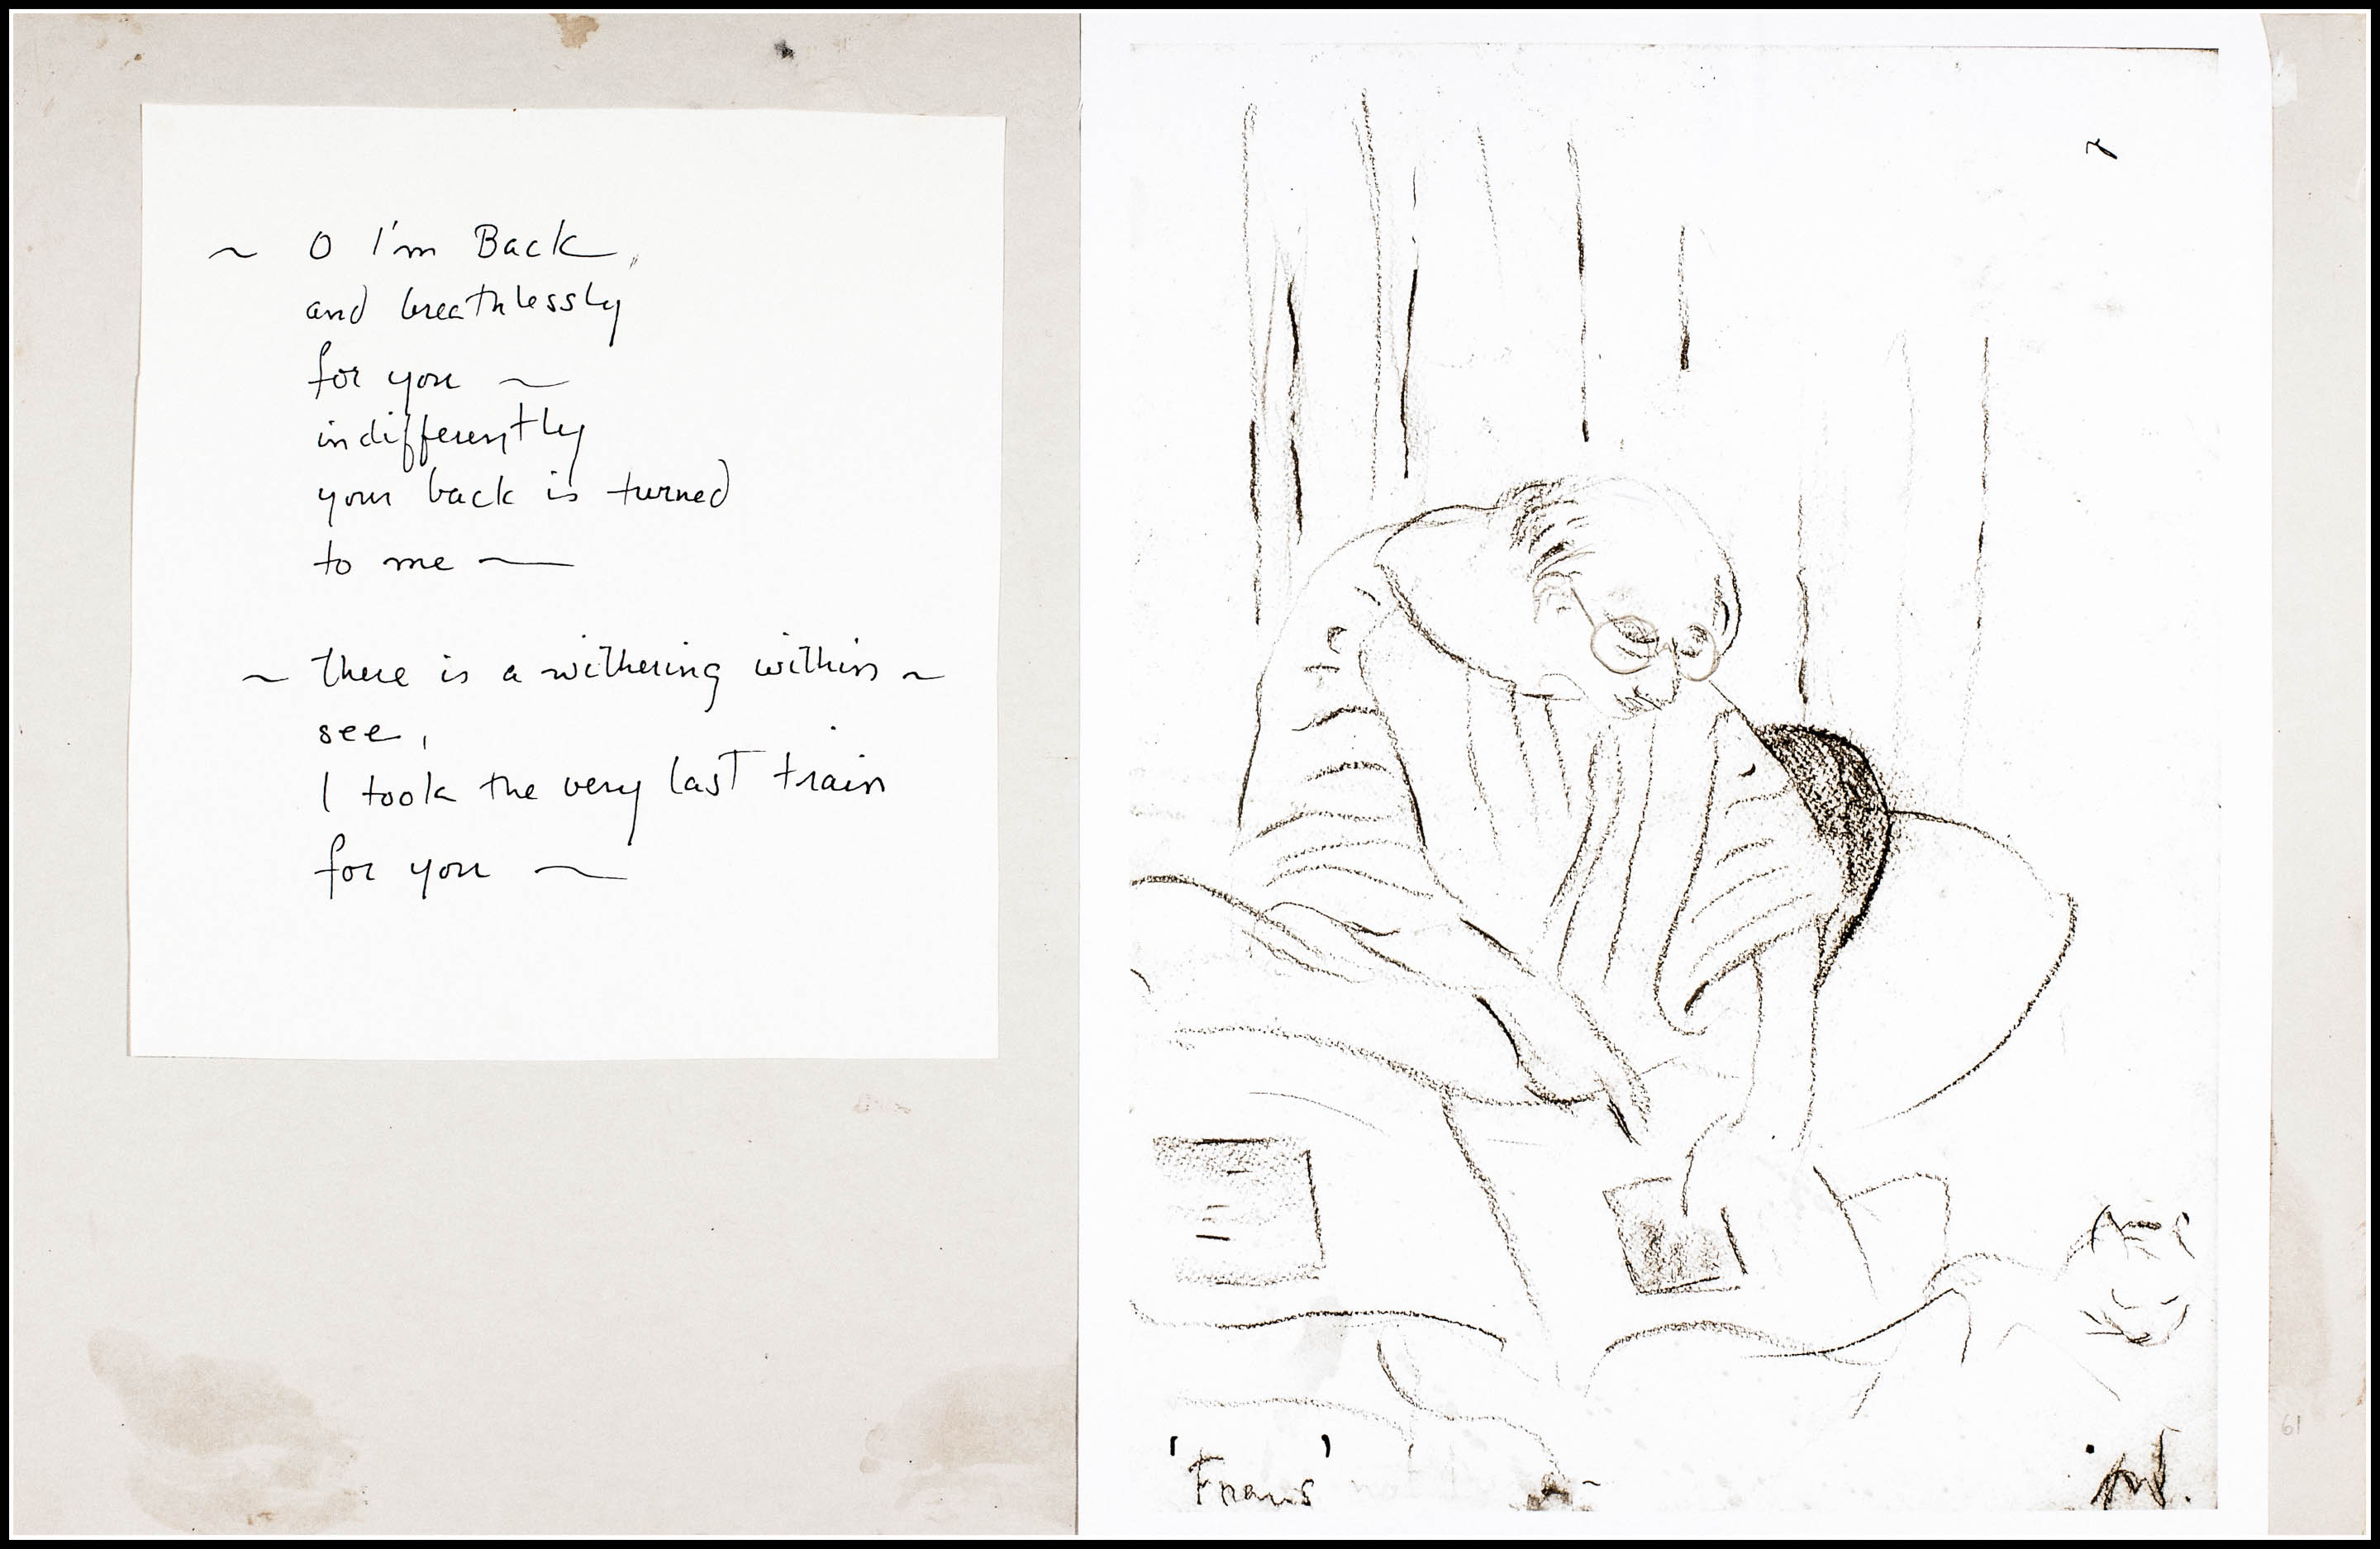 ~ O I'm Back,
and breathlessly
for you ~
indifferently
your back is turned
to me ~
~ there is a withering within ~
see,
I took the very last train
for you ~
'Frans'
61